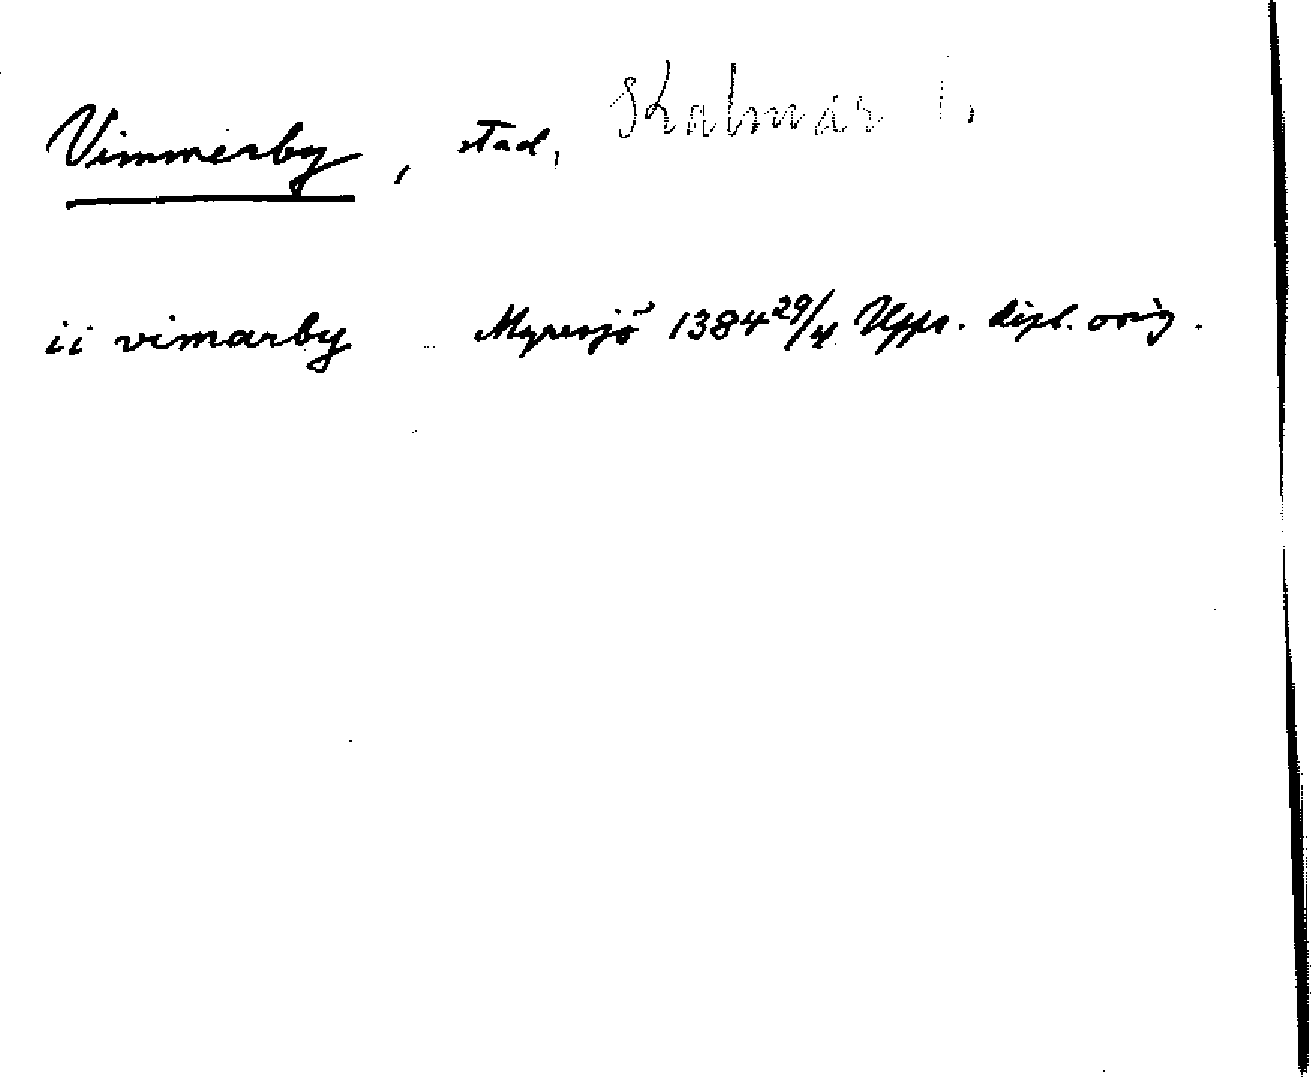 Vimmerby, stad, Kalmar l.
ii vimarby Myresjö 1384 29/4 Upps. dipl. orig.